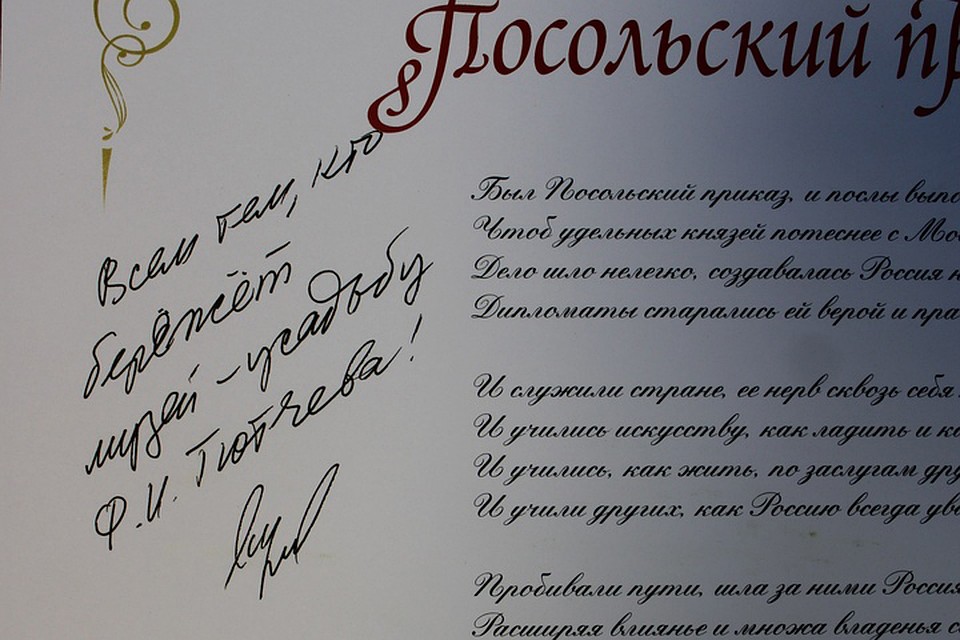 Посольский
Всем тем, кто
бережёт
музей-усадьбу
Ф.И. Тютчева!
Был Посольский приказ, и послы
Чтоб удельных князей потеснее с
Дело шло нелегко, создавалась Россия
Дипломаты старались ей верой и
И служили стране, ее нерв сквозь себя
И учились искусству, как ладить и
И учились, как жить, по заслугам
И учили других, как Россию всегда
Пробивали пути, шла за ними Россия
Расширяя влиянье и множа владенья